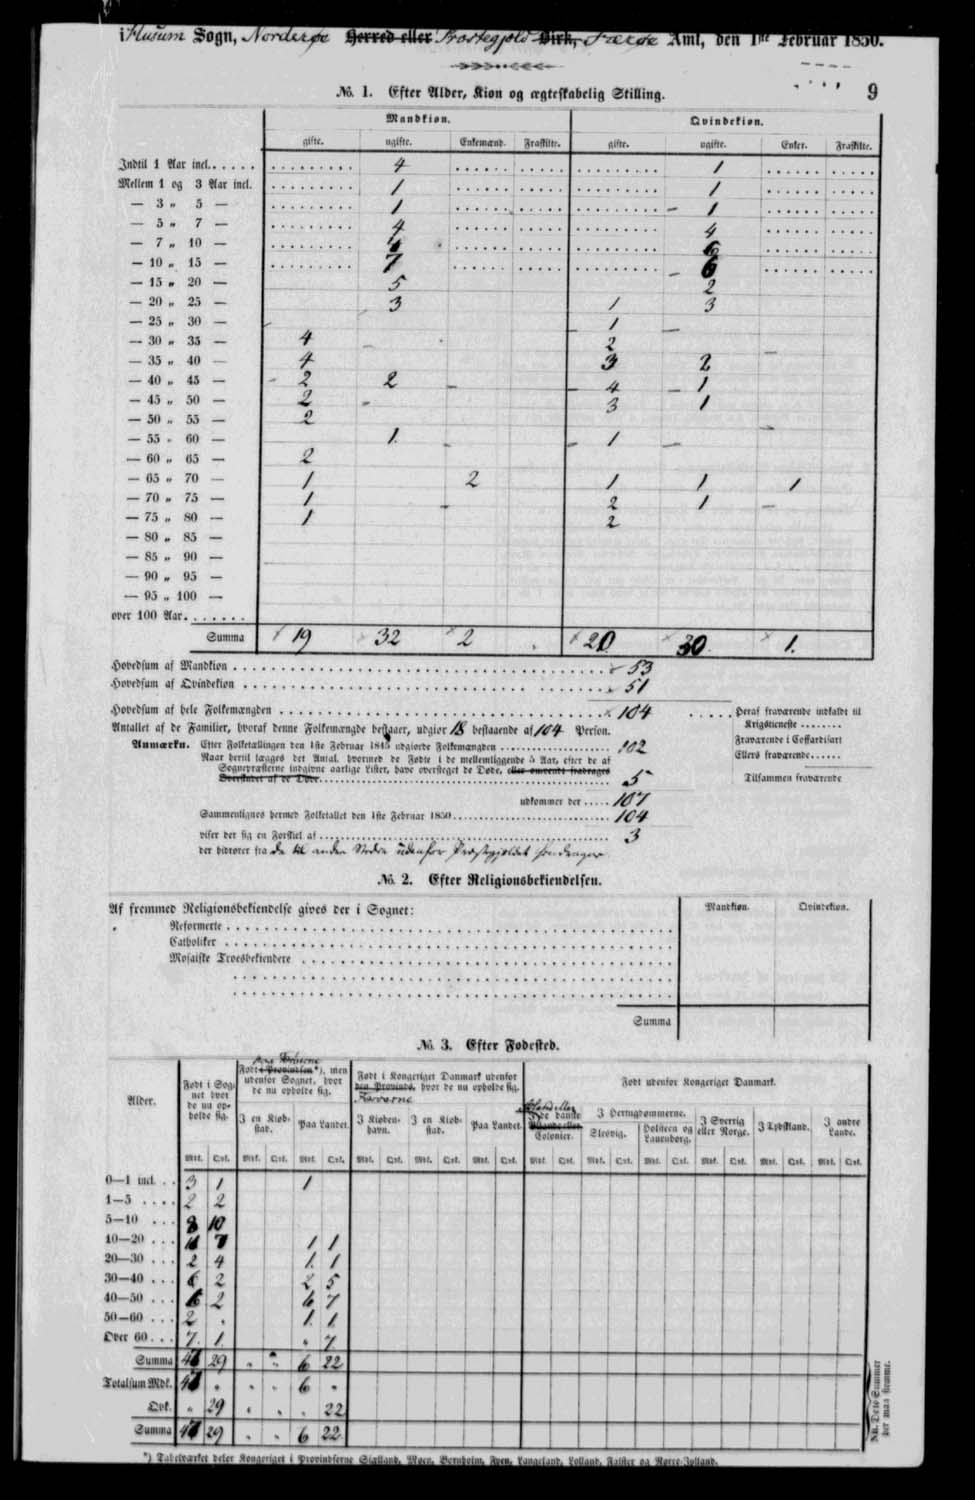 i Husum Sogn, Norderøe Herred eller Præstegjeld Birk, Færøe Amt, den 1ste Februar 1850.
9
No. 1. Efter Alder, Kion og ægteskabelig Stilling.
Mandkion. Qvindekion.
gifte. ugifte. Enkemænd. Fraskilte. gifte. ugifte. Enker. Fraskilte.
Indtil 1 Aar incl. . . . . . 4 1
Mellem 1 og 3 Aar incl. 1 1
— 3 „ 5 — 1 1
— 5 „ 7 — 4 4
— 7 „ 10 — 6
— 10 „ 15 — 7 6
— 15 „ 20 — 5 2
— 20 „ 25 — 3 1 3
— 25 „ 30 — 1
— 30 „ 35 — 4 2
— 35 „ 40 — 4 3 2
— 40 „ 45 — 2 2 4 1
— 45 „ 50 — 2 3 1
— 50 „ 55 — 2
— 55 „ 60 — 1 1
— 60 „ 65 — 2
— 65 „ 70 — 1 2 1 1 1
— 70 „ 75 — 1 2 1
— 75 „ 80 — 1 2
— 80 „ 85 —
— 85 „ 90 —
— 90 „ 95 —
— 95 „ 100 —
over 100 Aar. . . . . . .
Summa 19 32 2 20 30 1.
Hovedsum af Mandkion . . . 53
Hovedsum af Qvindekion . . . 51
Hovedsum af hele Folkemængden . . . 104 . . . . . Heraf fraværende indkaldt til
Krigstieneste . . . . . . . .
Antallet af de Familier, hvoraf denne Folkemængde bestaaer, udgior 18 bestaaende af 104 Person.
Fraværende i Coffardifart
Anmærkn. Efter Folketællingen den 1ste Februar 1845 udgiorde Folkemængden . . . 102
Ellers fraværende . . . . . .
Naar hertil lægges det Antal, hvormed de Fødte i de mellemliggende 5 Aar, efter de af
Sognepræsterne indgivne aarlige Lister, have oversteget de Døde, eller omvendt fradrages
Overskudet af de Døde . . . 5
Tilsammen fraværende
udkommer der . . . . . 107
Sammenlignes hermed Folketallet den 1ste Februar 1850 . . . 104
viser der sig en Forskiel af . . . 3
der hidrører fra de til andre Steder udenfor Præstegjeldet
No. 2. Efter Religionsbekiendelsen.
Mandkion. Qvindekion.
Af fremmed Religionsbekiendelse gives der i Sognet:
Reformerte . . .
Catholiker . . .
Mosaiske Troesbekiendere . . .
Summa
No. 3. Efter Fødested.
Alder.
Født i Sognet hvor de nu opholde sig.
paa Færøerne
Født i Provindsen*), men udenfor Sognet, hvor de nu opholde sig.
Født i Kongeriget Danmark udenfor den Provinds, hvor de nu opholde sig.
Færøerne
Født udenfor Kongeriget Danmark.
I en Kiøbstad. Paa Landet. I Kiøbenhavn. I en Kiøbstad. Paa Landet. Island eller de danske Bilande eller Colonier. I Hertugdømmerne. Slesvig. Holsteen og Lauenborg. I Sverrig eller Norge. I Tydskland. I andre Lande.
Mdk. Qvk. Mdk. Qvk. Mdk. Qvk. Mdk. Qvk. Mdk. Qvk. Mdk. Qvk. Mdk. Qvk. Mdk. Qvk. Mdk. Qvk. Mdk. Qvk. Mdk. Qvk. Mdk. Qvk.
0—1 incl. . . 3 1 1
1—5 . . . . 2 2
5—10 . . . 8 10
10—20 . . . 11 7 1 1
20—30 . . . 2 4 1. 1
30—40 . . . 6 2 2 5
40—50 . . . 6 2 6 7
50—60 . . . 2 „ 1. 1.
Over 60 . . . 7. 1. „ 7.
Summa 47 29 „ „ 6 22
Totalsum Mdk. 47 „ „ „ 6 „
Qvk. „ 29 „ „ „ 22
Summa 47 29 „ „ 6 22
NB. Disse Summer her maa stemme.
*) Tabelværket deler Kongeriget i Provindserne Siælland, Møen, Bornholm, Fyen, Langeland, Lolland, Falster og Nørre-Jylland.